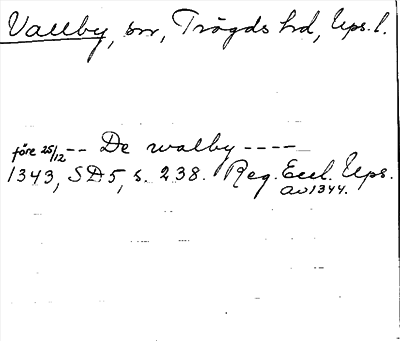 Vallby, sn, Trögds hd, Ups. l.
före 25/12 -- De walby ----
1343, SD 5, s. 238. Reg. Eccl. Ups.
av 1344.